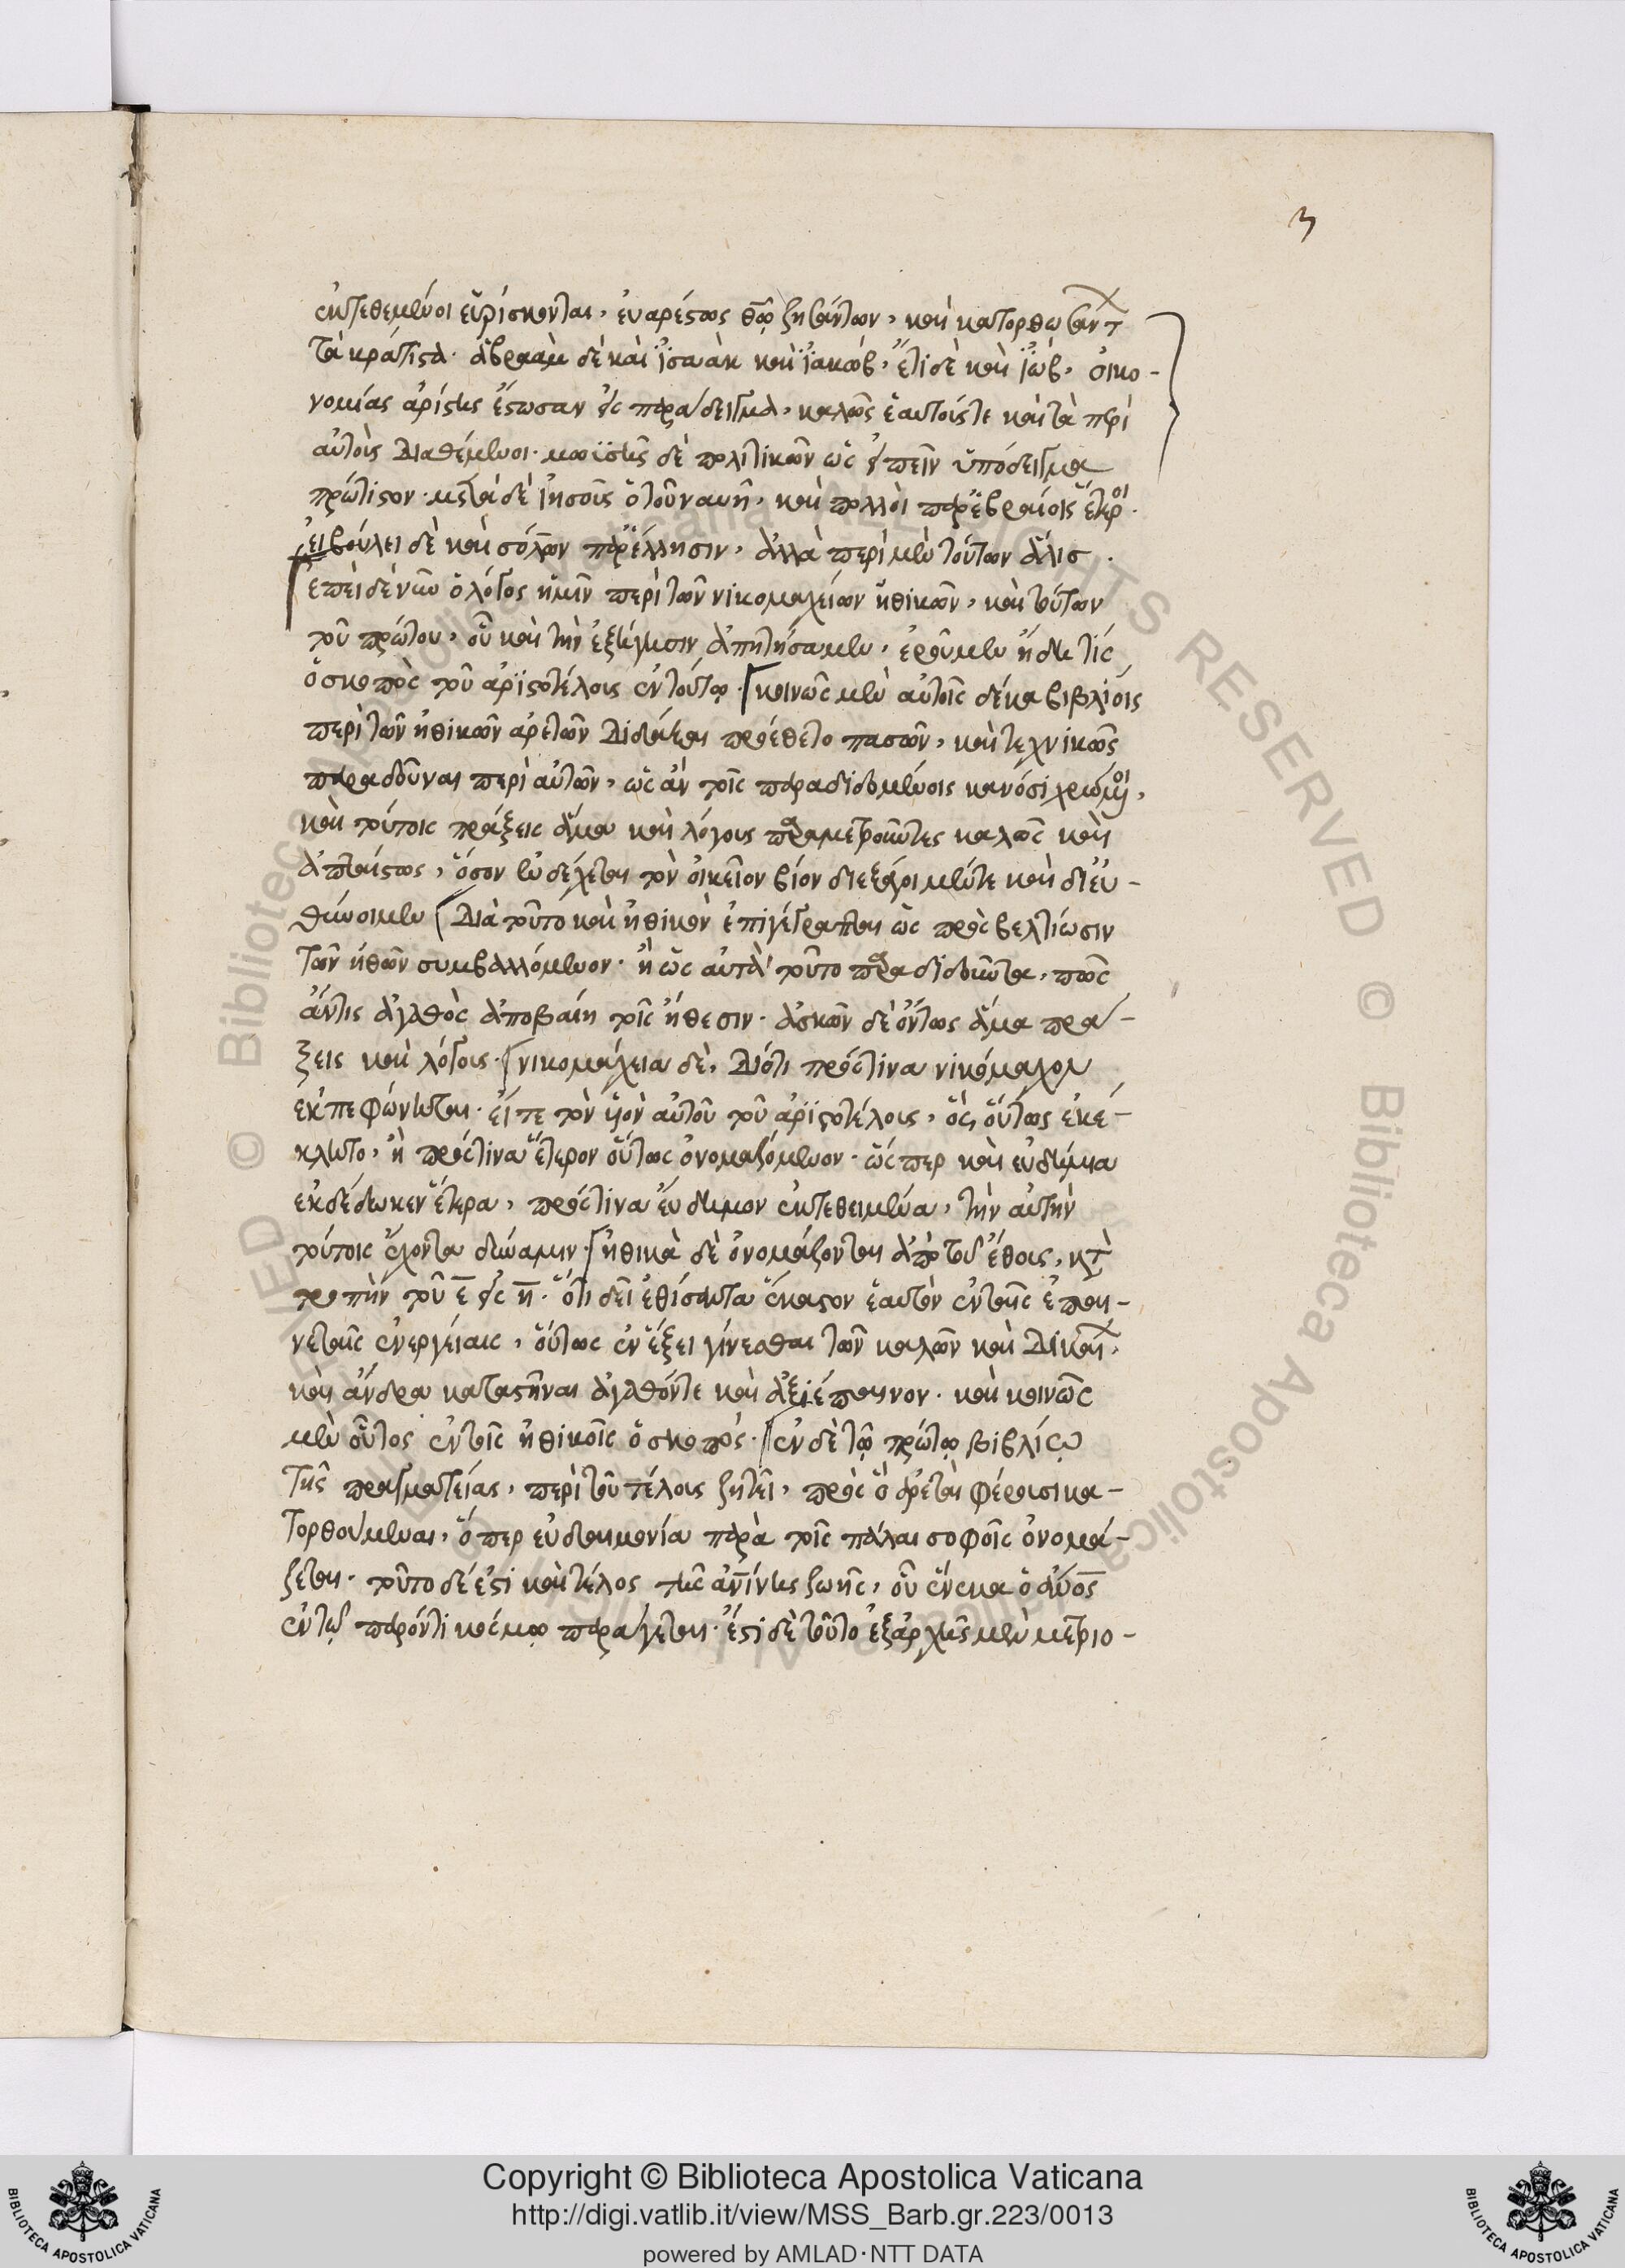 3
ἐκτεθειμένοι εὑρίσκονται, εὐαρέστως θῶ ζησάντων, καὶ κατορθωσάντ
τὰ κράτιστα. ἀβραὰμ δὲ καὶ ἰσαὰκ καὶ ἰακὼβ, ἔτι δὲ καὶ ἰὼβ, οἰκο-
νομίας ἀρίστης ἔστωσαν εἰς παράδειγμα, καλῶς ἑαυτούς τε καὶ τὰ περὶ
αὐτοὺς διαθέμενοι. μωϋσῆς δὲ πολιτικῶν ὡς εἰπεῖν ὑπόδειγμα
πρώτιστον. μετὰ δὲ ἰησοῦς ὁ τοῦ ναυῆ, καὶ πολλοὶ παρ' ἑβραίοις ἕτεροι.
εἰ βούλει δὲ καὶ σόλων παρ' ἕλλησιν, ἀλλὰ περὶ μὲν τούτων ἅλις.
ἐπεὶ δὲ νῦν ὁ λόγος ἡμῖν περὶ τῶν νικομαχείων ἠθικῶν, καὶ τούτων
τοῦ πρώτου, οὗ καὶ τὴν ἐξήγησιν ἀπῃτήσαμεν, ἐροῦμεν ἤδη τίς
ὁ σκοπὸς τοῦ ἀριστοτέλους ἐν τούτῳ. κοινῶς μὲν αὐτοῖς δέκα βιβλίοις
περὶ τῶν ἠθικῶν ἀρετῶν διδάξαι προέθετο πασῶν, καὶ τεχνικῶς
παραδοῦναι περὶ αὐτῶν, ὡς ἂν τοῖς παραδιδομένοις κανόσι χρώμενοι,
καὶ τούτοις πράξεις ἅμα καὶ λόγους παραμετροῦντες καλῶς καὶ
ἀπταίστως, ὅσον ἐνδέχεται τὸν οἰκεῖον βίον διεξάγοιμέν τε καὶ διευ-
θύνοιμεν διὰ τοῦτο καὶ ἠθικὸν ἐπιγέγραπται ὡς πρὸς βελτίωσιν
τῶν ἠθῶν συμβαλλόμενον. ἢ ὡς αὐτὰ τοῦτο παραδιδόντα, πῶς
ἄν τις ἀγαθὸς ἀποβαίη τοῖς ἤθεσιν. ἀσκῶν δὲ ὄντως ἅμα πρά-
ξεις καὶ λόγους. νικομάχεια δὲ, διότι πρός τινα νικόμαχον
ἐκπεφώνηται. εἴτε τὸν ὑὸν αὐτοῦ τοῦ ἀριστοτέλους, ὃς οὕτως ἐκέ-
κλητο, ἢ πρός τινα ἕτερον οὕτως ὀνομαζόμενον. ὥσπερ καὶ εὐδήμια
ἐκδέδωκεν ἕτερα, πρός τινα εὔδημον ἐκτεθειμένα, τὴν αὐτὴν
τούτοις ἔχοντα δύναμιν. ἠθικὰ δὲ ὀνομάζονται ἀπὸ τοῦ ἔθους, κτ
τροπὴν τοῦ ε εἰς η. ὅτι δεῖ ἐθίσαντα ἕκαστον ἑαυτὸν ἐν ταῖς ἐπαι-
νεταῖς ἐνεργείαις, οὕτως ἐν ἕξει γίνεσθαι τῶν καλῶν καὶ δικαίων,
καὶ ἄνδρα καταστῆναι ἀγαθόν τε καὶ ἀξιέπαινον. καὶ κοινῶς
μὲν οὗτος ἐν τοῖς ἠθικοῖς ὁ σκοπός. ἐν δὲ τῷ πρώτῳ βιβλίῳ
τῆς πραγματείας, περὶ τοῦ τέλους ζητεῖ, πρὸς ὃ ἀρεταὶ φέρουσι κα-
τορθούμεναι, ὅπερ εὐδαιμονία παρὰ τοῖς πάλαι σοφοῖς ὀνομά-
ζεται. τοῦτο δέ ἐστι καὶ τέλος τῆς ἀνίνης ζωῆς, οὗ ἕνεκα ὁ ἄνος
ἐν τῷ παρόντι κόσμῳ παράγεται. ἔστι δὲ τοῦτο ἐξ ἀρχῆς μὲν μετριο-
Copyright © Biblioteca Apostolica Vaticana
http://digi.vatlib.it/view/MSS_Barb.gr.223/0013
powered by AMLAD·NTT DATA